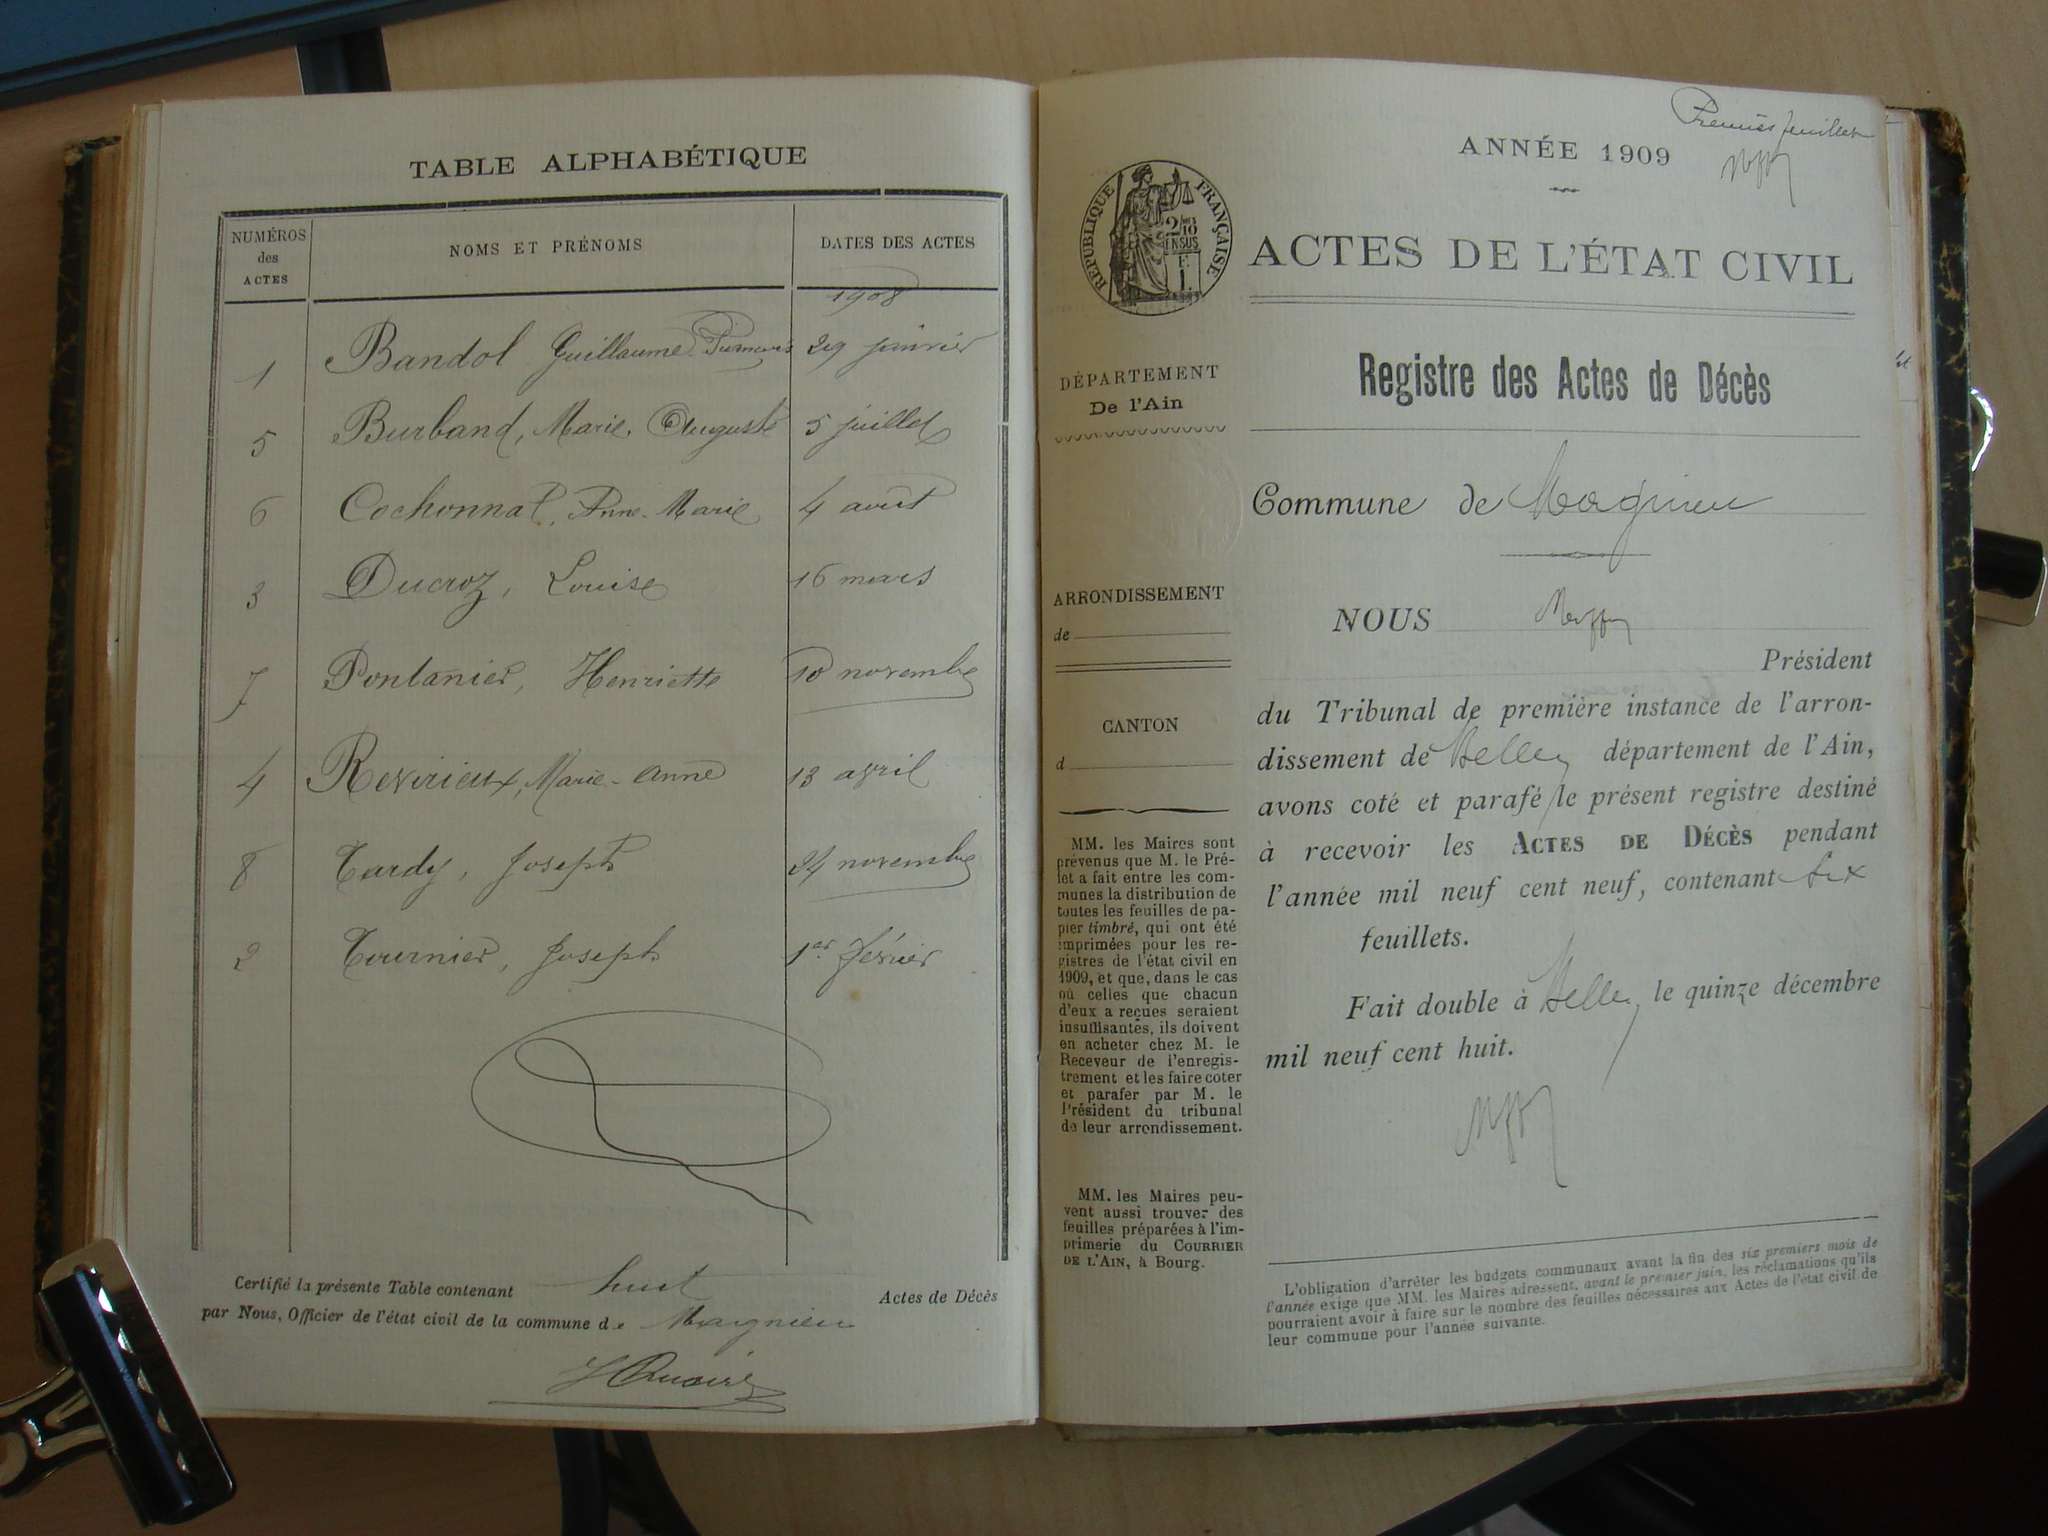 TABLE ALPHABÉTIQUE
NUMÉROS des ACTES
NOMS ET PRÉNOMS
DATES DES ACTES
1908
1 Bandol Guillaume 29 janvier
5 Burband, Marie, Auguste 5 juillet
6 Cochonnat, Anne-Marie 4 août
3 Ducroz, Louise 16 mars
7 Pontanier, Henriette 10 novembre
4 Revirieux, Marie-Anne 13 avril
8 Tardy, Joseph 24 novembre
2 Tournier, Joseph 1er février
Certifié la présente Table contenant huit Actes de Décès
par Nous, Officier de l'état civil de la commune de Magnieu
Premier feuillet
ANNÉE 1909
RÉPUBLIQUE FRANÇAISE
2/10
EN SUS
ACTES DE L'ÉTAT CIVIL
DÉPARTEMENT
De l'Ain
ARRONDISSEMENT
de
CANTON
d
MM. les Maires sont
prévenus que M. le Pré-
fet a fait entre les com-
munes la distribution de
toutes les feuilles de pa-
pier timbré, qui ont été
imprimées pour les re-
gistres de l'état civil en
1909, et que, dans le cas
où celles que chacun
d'eux a reçues seraient
insuffisantes, ils doivent
en acheter chez M. le
Receveur de l'enregis-
trement et les faire coter
et parafer par M. le
Président du tribunal
de leur arrondissement.
MM. les Maires peu-
vent aussi trouver des
feuilles préparées à l'im-
primerie du COURRIER
DE L'AIN, à Bourg.
Registre des Actes de Décès
Commune de Magnieu
NOUS
Président
du Tribunal de première instance de l'arron-
dissement de Belley département de l'Ain,
avons coté et parafé le présent registre destiné
à recevoir les ACTES DE DÉCÈS pendant
l'année mil neuf cent neuf, contenant six
feuillets.
Fait double à Belley, le quinze décembre
mil neuf cent huit.
L'obligation d'arrêter les budgets communaux avant la fin des six premiers mois de
l'année exige que MM. les Maires adressent, avant le premier juin, les réclamations qu'ils
pourraient avoir à faire sur le nombre des feuilles nécessaires aux Actes de l'état civil de
leur commune pour l'année suivante.